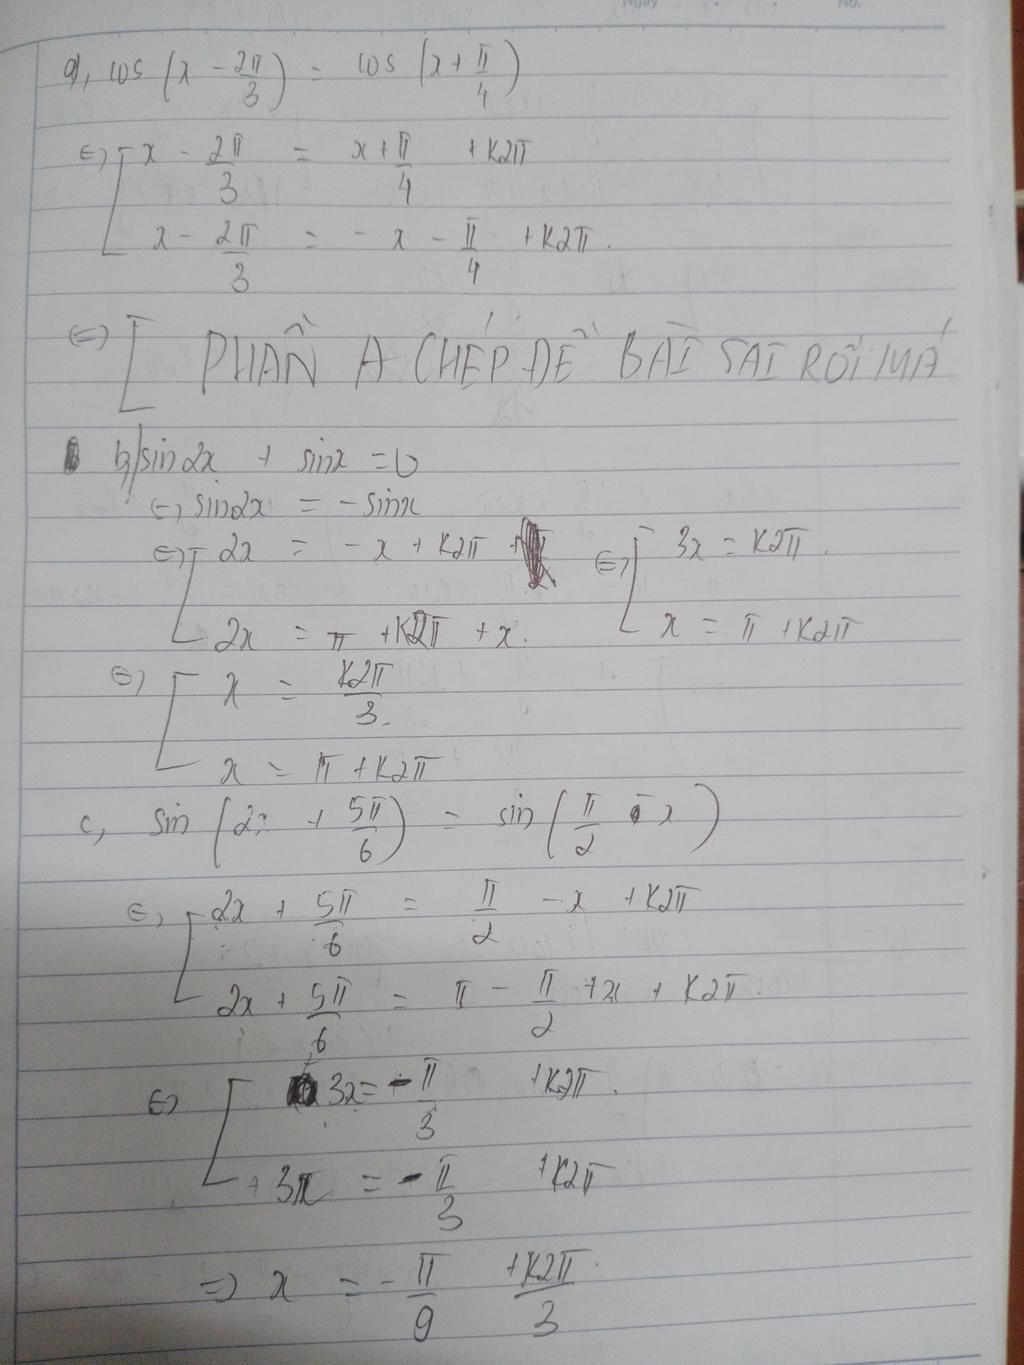 Ngày No.
a, cos (x - 2π/3) = cos (x + π/4)
⇔ [ x - 2π/3 = x + π/4 + K2π
x - 2π/3 = - x - π/4 + K2π.
⇔ [ PHẦN A CHÉP ĐỀ BÀI SAI RỒI MÁ
b, sin2x + sinx = 0
⇔ sin2x = -sinx
⇔ [ 2x = -x + K2π ⇔ [ 3x = K2π.
2x = π + K2π + x. x = π + K2π
⇔ [ x = K2π/3.
x = π + K2π
c, sin (2x + 5π/6) = sin (π/2 - x)
⇔ [ 2x + 5π/6 = π/2 - x + K2π
2x + 5π/6 = π - π/2 + x + K2π.
⇔ [ 3x = -π/3 + K2π.
+ 3x = -π/3 + K2π
⇒ x = -π/9 + K2π/3